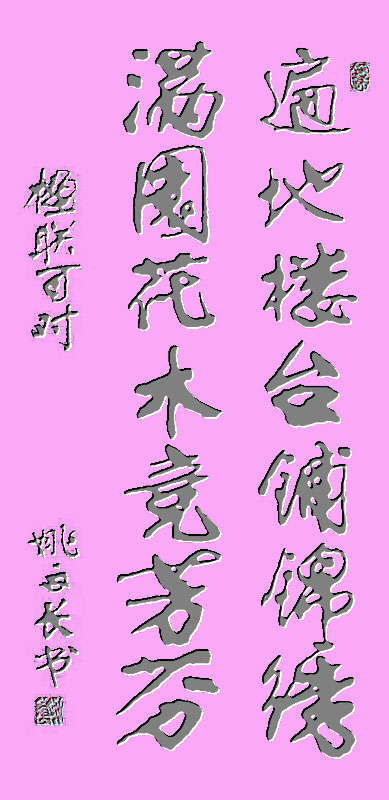 遍地楼台铺锦绣
满园花木竞芳芬
楹联可时
姚云长书